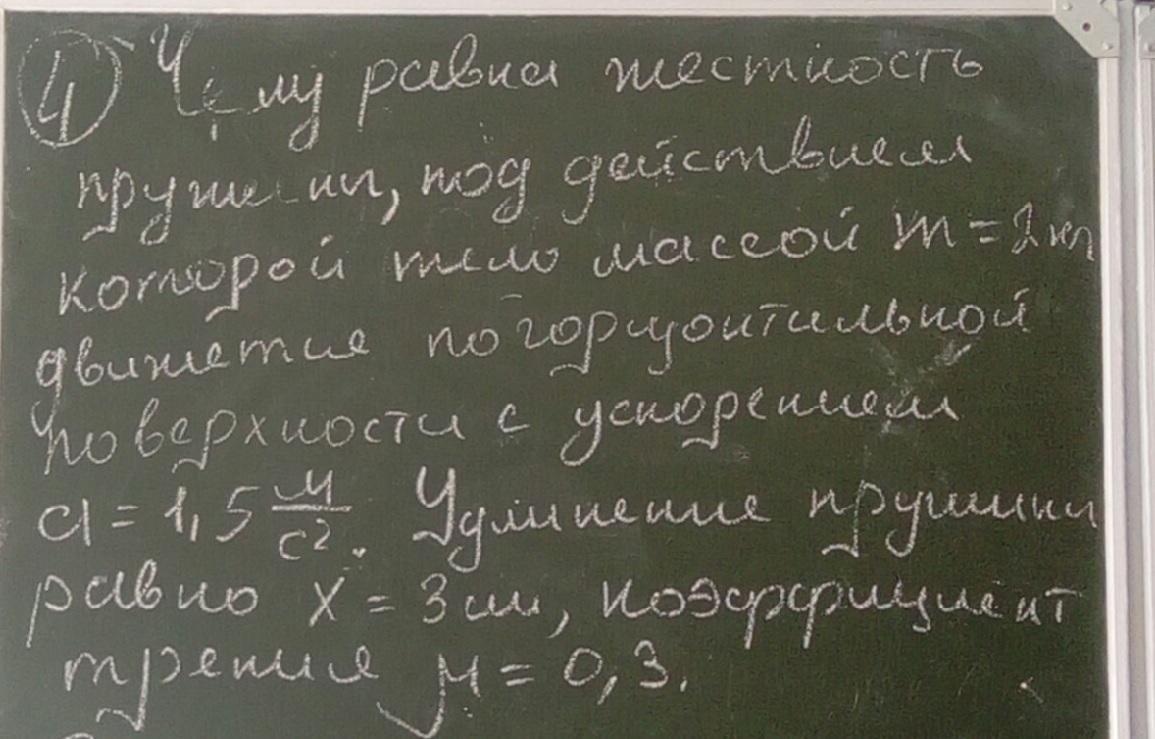 ④ Чему равна жесткость
пружины, под действием
которой тело массой m = 2 кг
движется по горизонтальной
поверхности с ускорением
a = 1,5 м/с². Удлинение пружины
равно x = 3 см, коэффициент
трения μ = 0,3.